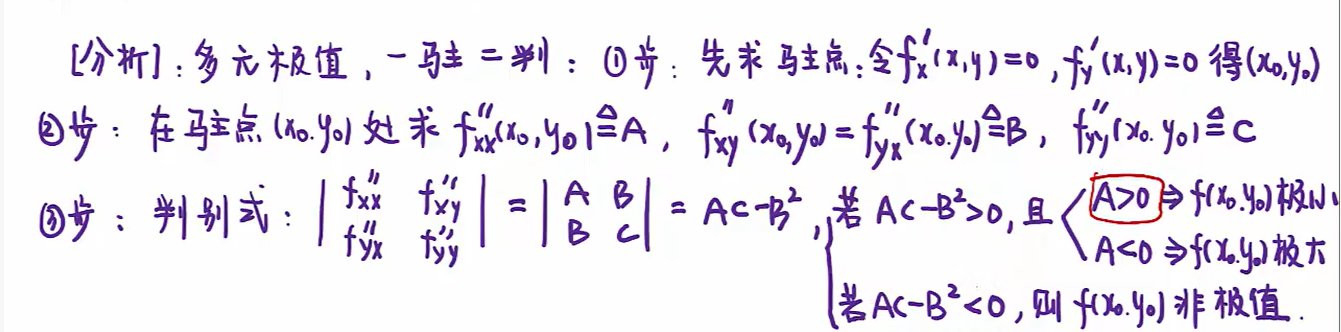 [分析]:多元极值,一驻二判:①步:先求驻点:令f'x(x,y)=0,f'y(x,y)=0得(x₀,y₀)
②步:在驻点(x₀,y₀)处求f''xx(x₀,y₀)≜A,f''xy(x₀,y₀)=f''yx(x₀,y₀)≜B,f''yy(x₀,y₀)≜C
③步:判别式:|f''xx f''xy f''yx f''yy|=|A B B C|=AC-B²,若AC-B²>0,且
A>0⇒f(x₀,y₀)极小
A<0⇒f(x₀,y₀)极大
若AC-B²<0,则f(x₀,y₀)非极值.